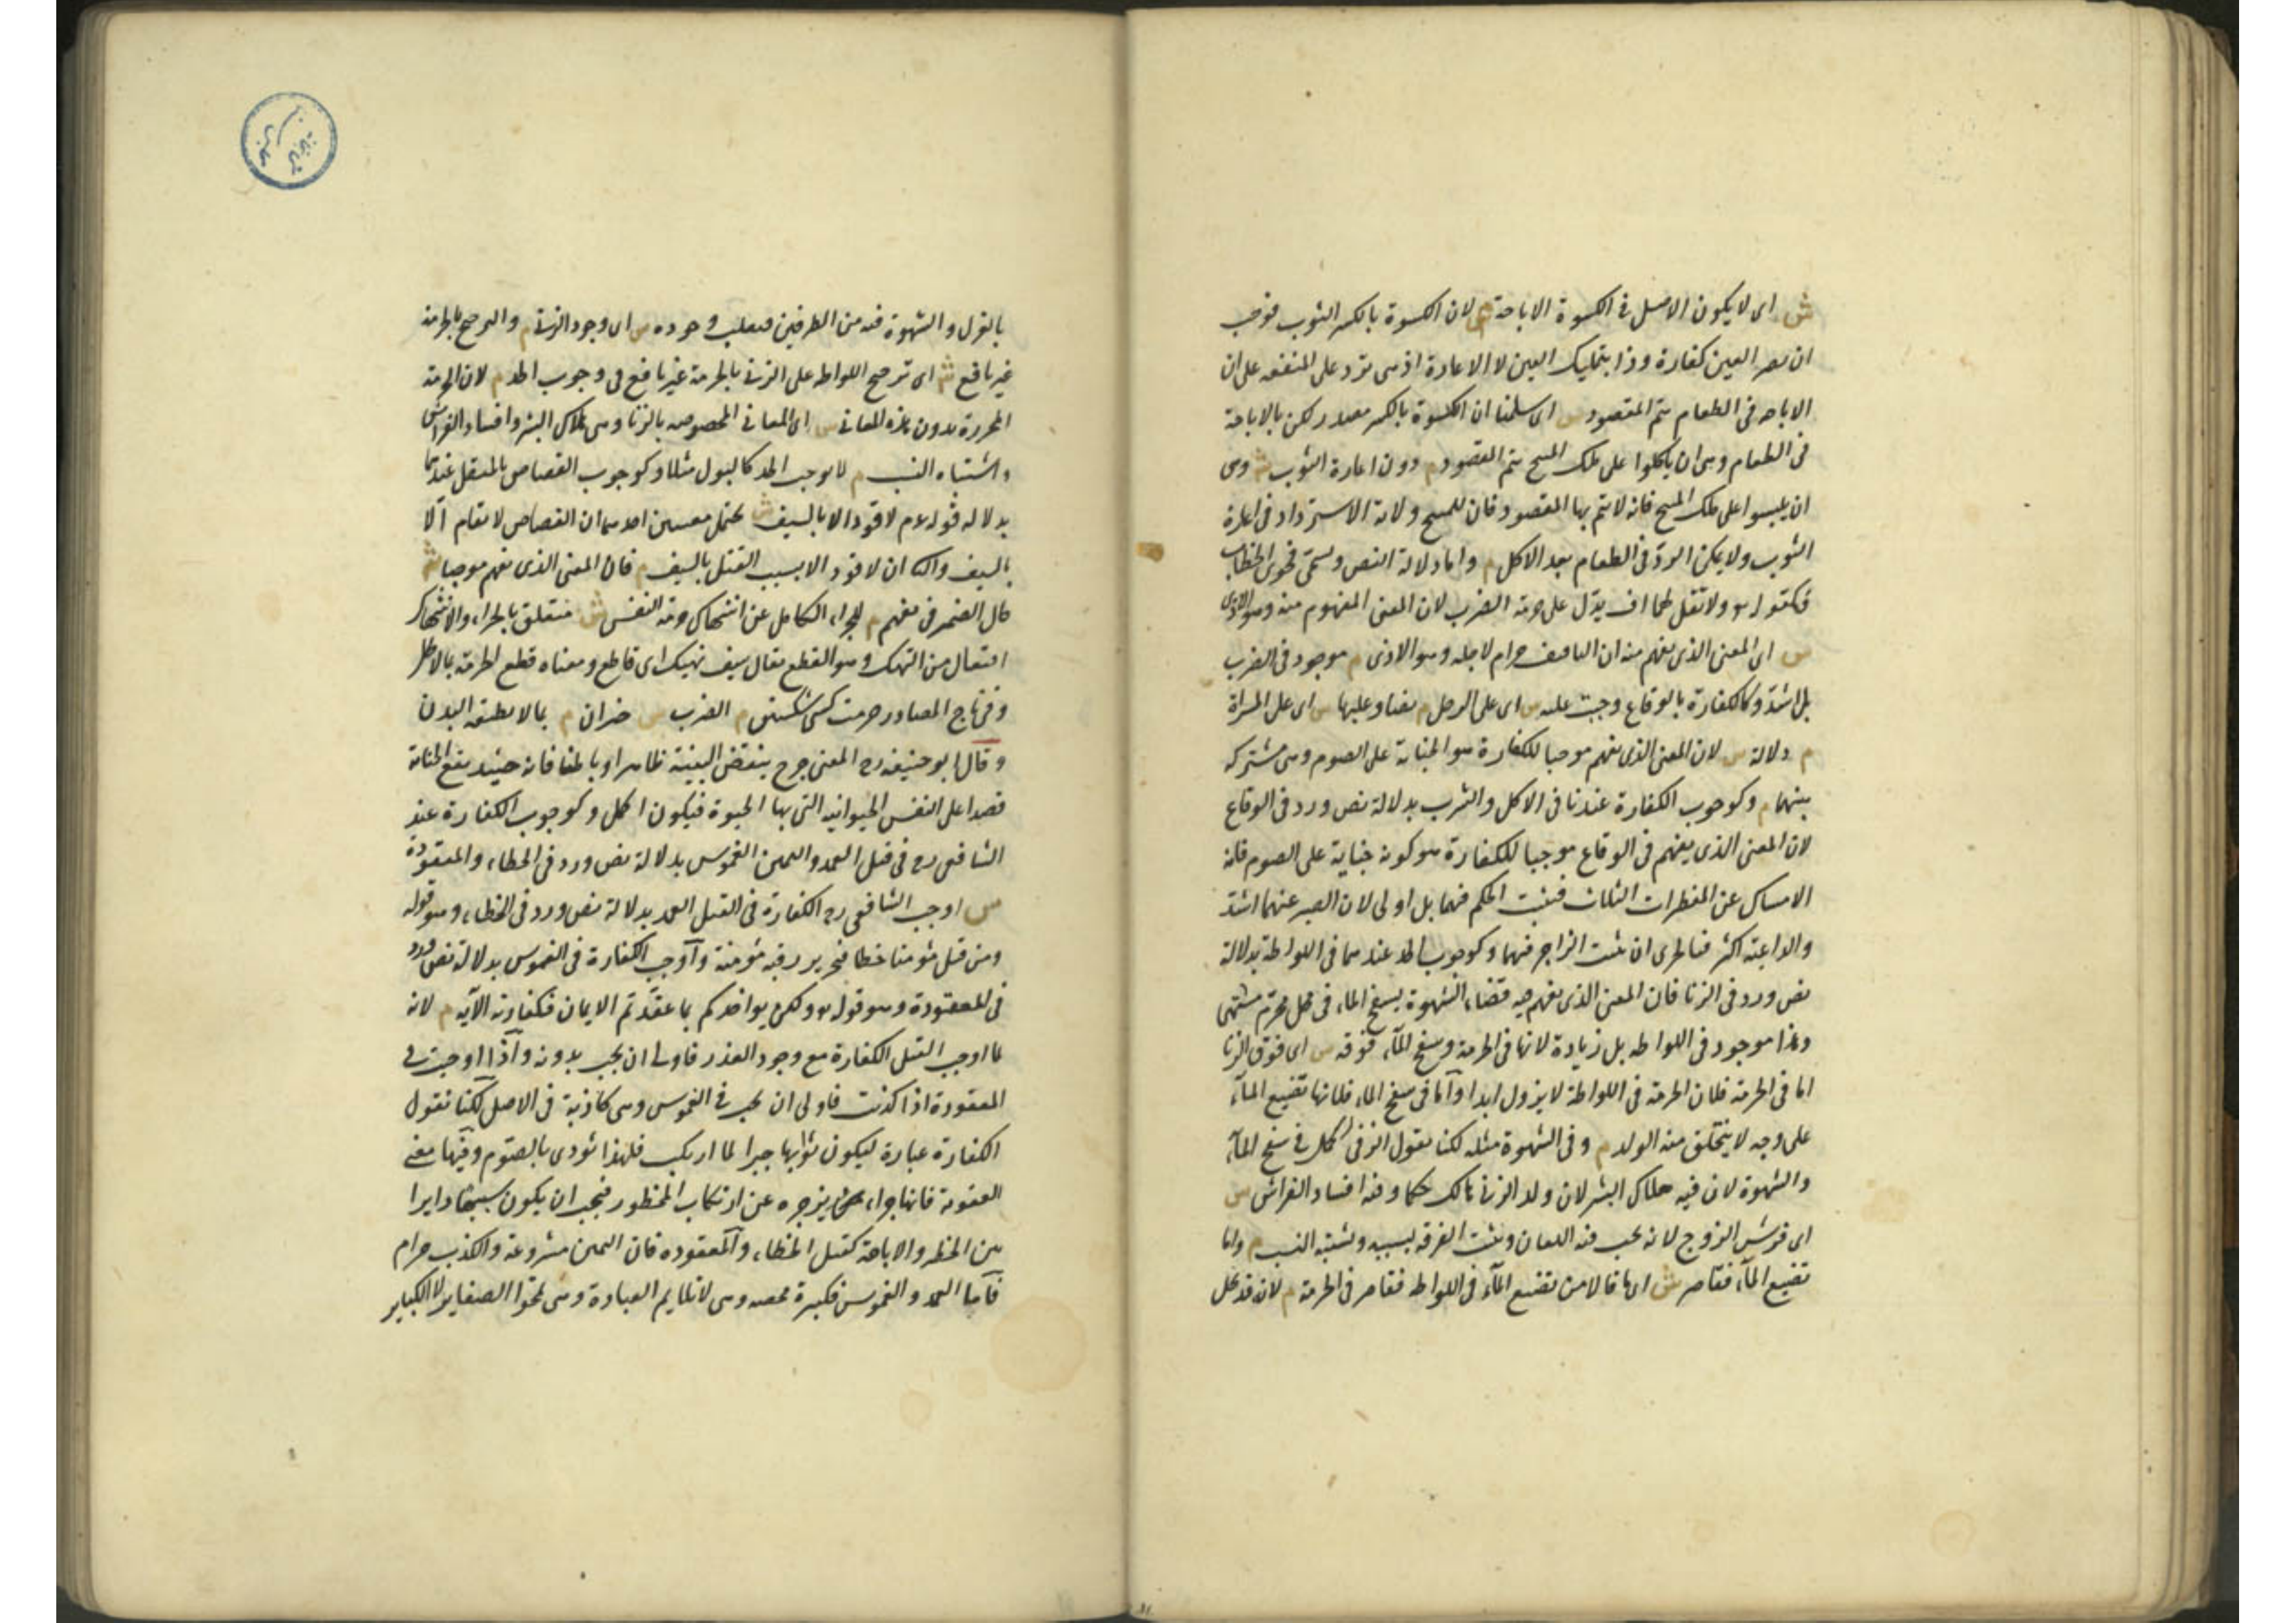 ش اى لا يكون الاصل فى الكسوة الاباحة م لان الكسوة بالكسر الثوب فوجب
ان يصير العين كفارة وذا بتمليك العين لا الاعارة اذ هى ترد على المنفعة على ان
الاباحة فى الطعام يتم المقصود ش اى سلمنا ان الكسوة بالكسر مصدر لكن بالاباحة
فى الطعام وهى ان ياكلوا على ملك المبيح يتم المقصود م دون اعارة الثوب ش وهى
ان يلبسوا على ملك المبيح فانه لا يتم بها المقصود فان للمبيح ولاية الاسترداد فى اعارة
الثوب ولا يمكن الرد فى الطعام بعد الاكل م واما دلالة النص ويسمى فحوى الخطاب
فكقوله تع ولا تقل لهما اف يدل على حرمة الضرب لان المعنى المفهوم منه وهو الاذى
ش اى المعنى الذى يفهم منه ان التافيف حرام لاجله وهو الاذى م موجود فى الضرب
بل اشد وكالكفارة بالوقاع وجبت عليه ش اى على الرجل م نصا وعليها ش اى على المراة
م دلالة ش لان المعنى الذى يفهم موجبا للكفارة هو الجناية على الصوم وهى مشتركة
بينهما م وكوجوب الكفارة عندنا فى الاكل والشرب بدلالة نص ورد فى الوقاع
لان المعنى الذى يفهم فى الوقاع موجبا للكفارة هو كونه جناية على الصوم فانه
الامساك عن المفطرات الثلاث فيثبت الحكم فيهما بل اولى لان الصبر عنهما اشد
والداعية اكثر فبالحرى ان يثبت الزاجر فيهما وكوجوب الحد عندهما فى اللواطة بدلالة
نص ورد فى الزنا فان المعنى الذى يفهم فيه قضاء الشهوة بسفح الماء فى محل محرم مشتهى
وهذا موجود فى اللواطة بل زيادة لانها فى الحرمة وسفح الماء فوقه ش اى فوق الزنا
اما فى الحرمة فلان الحرمة فى اللواطة لا يزول ابدا واما فى سفح الماء فلانها تضييع الماء
على وجه لا يتخلق منه الولد م وفى الشهوة مثله لكنا نقول الزنى اكمل فى سفح الماء
والشهوة لان فيه هلاك البشر لان ولد الزنى هالك حكما وفيه افساد الفراش ش
اى فرش الزوج لانه يجب فيه اللعان ويثبت الفرقة بسببه ويشتبه النسب م واما
تضييع الماء فقاصر ش اى ما قالا من تضييع الماء فى اللواطة فقاصر فى الحرمة م لانه قد يحل
بالعزل والشهوة فيه من الطرفين فيغلب وجوده ش اى وجود الزنى م والترجيح بالحرمة
غير نافع ش اى ترجيح اللواطة على الزنى بالحرمة غير نافع فى وجوب الحد م لان الحرمة
المجردة بدون هذه المعانى ش اى المعانى المخصوصة بالزنا وهى هلاك البشر وافساد الفراش
واشتباه النسب م لا يوجب الحد كالبول مثلا وكوجوب القصاص بالمثقل عندهما
بدلالة قوله عم لا قود الا بالسيف ش يحتمل معنيين احدهما ان القصاص لا يقام الا
بالسيف والثانى ان لا قود الا بسبب القتل بالسيف م فان المعنى الذى يفهم موجبا ش
حال الضمير فى يفهم م للجزاء الكامل عن انتهاك حرمة النفس ش متعلق بالجزاء والانتهاك
افتعال من النهك وهو القطع يقال سيف نهيك اى قاطع ومعناه قطع الحرمة بما لا يحل
وفى تاج المصادر حرمت كسى شكستن م الضرب ش خبر ان م بما لا يطيقه البدن
وقال ابو حنيفة رح المعنى جرح ينقض البنية ظاهرا وباطنا فانه حينئذ يقع الجناية
قصدا على النفس الحيوانية التى بها الحيوة فيكون اكمل وكوجوب الكفارة عند
الشافعى رح فى قتل العمد واليمين الغموس بدلالة نص ورد فى الخطاء والمعقودة
ش اوجب الشافعى رح الكفارة فى القتل العمد بدلالة نص ورد فى الخطاء وهو قوله
ومن قتل مؤمنا خطا فتحرير رقبة مؤمنة واوجب الكفارة فى الغموس بدلالة نص ورد
فى المعقودة وهو قوله تع ولكن يواخذكم بما عقدتم الايمان فكفارته الاية م لانه
لما اوجب القتل الكفارة مع وجود العذر فاولى ان يجب بدونه واذا اوجبت فى
المعقودة اذا كذبت فاولى ان يجب فى الغموس وهى كاذبة فى الاصل لكنا نقول
الكفارة عبادة ليكون ثوابها جبرا لما ارتكب فلهذا تؤدى بالصوم وفيها معنى
العقوبة فانها جزاء يزجره عن ارتكاب المحظور فيجب ان يكون سببها دايرا
بين الحظر والاباحة كقتل الخطاء والمعقودة فان اليمين مشروعة والكذب حرام
فاما العمد والغموس فكبيرة محضة وهى لا تلايم العبادة وهى تمحوا الصغاير لا الكباير